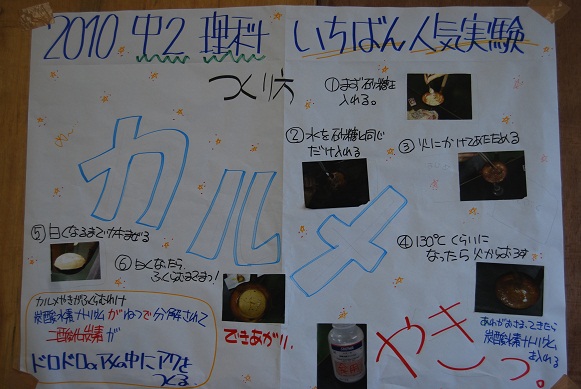 2010 中2 理科 いちばん人気実験
つくり方
カルメ
やきっ。
①まず砂糖を
入れる。
②水を砂糖と同じ
だけ入れる
③火にかけてあたためる
④130℃くらいに
なったら火からおろす
あわがおさまってきたら
炭酸水素ナトリウムを
入れる
⑤白くなるまでかきまぜる
⑥白くなったら、
ふくらむまでまつ!
できあがり。
カルメやきがふくらむわけ
炭酸水素ナトリウムがねつで分解されて
二酸化炭素が
ドロドロのアメの中にアワを
つくる